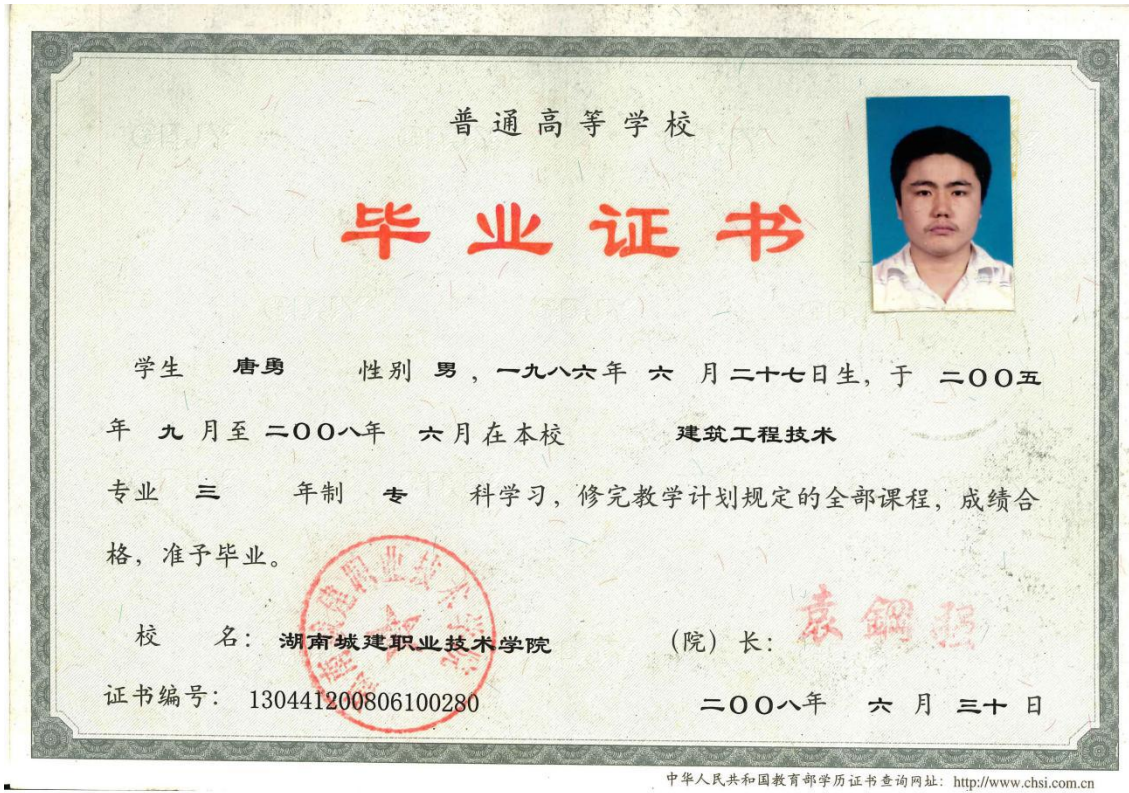 普通高等学校
毕业证书
学生 唐勇 性别 男，一九八六年 六 月二十七日生，于 二〇〇五
年 九 月至 二〇〇八年 六月在本校 建筑工程技术
专业 三 年制 专 科学习，修完教学计划规定的全部课程，成绩合
格，准予毕业。
湖南城建职业技术学院
校 名：湖南城建职业技术学院 （院）长：
证书编号：130441200806100280 二〇〇八年 六 月 三十 日
中华人民共和国教育部学历证书查询网址：http://www.chsi.com.cn